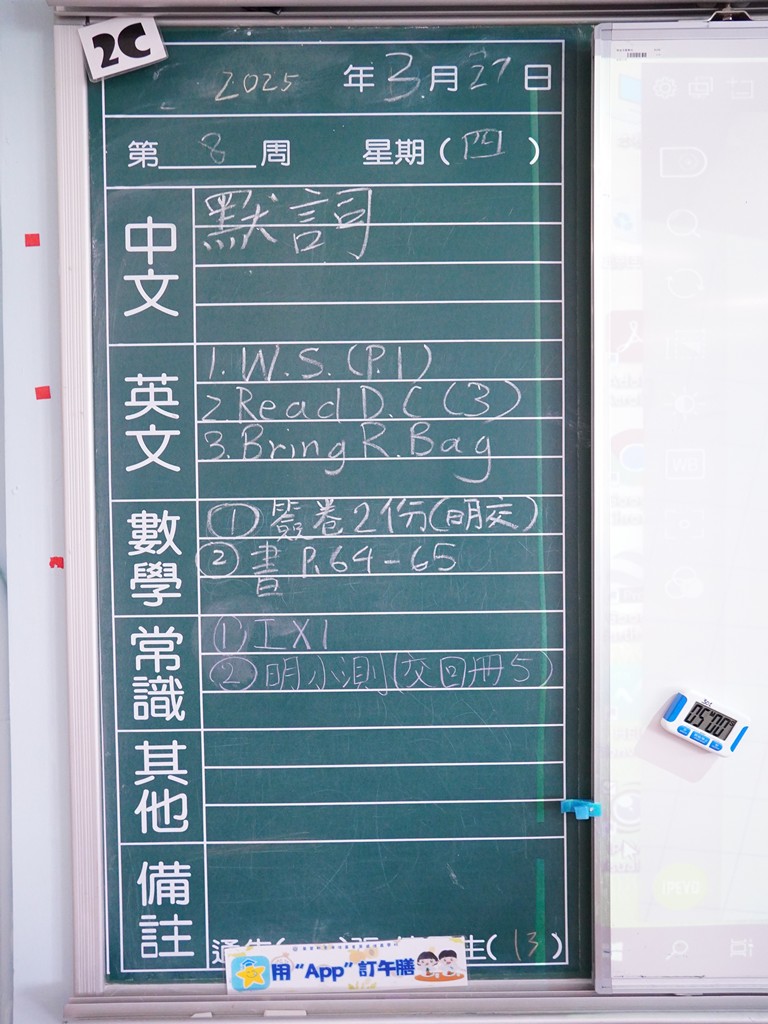 2C
2025 年 3 月 27 日
第 8 周 星期 ( 四 )
中文
默詞
英文
1. W.S. (P.1)
2. Read D.C (3)
3. Bring R. Bag
數學
① 簽卷2份(明交)
② 書 P.64-65
常識
① 工X1
② 明小測(交回冊5)
其他
備註
生( 13 )
用“App”訂午膳
05 00